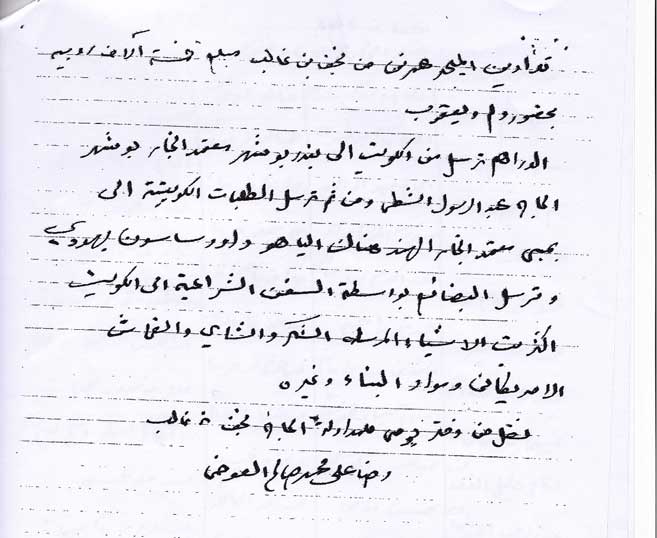 من نجف بن غالب مبلغ خمسة آلاف روبيه
بحضور وليم ويعقوب
الدراهم ترسل من الكويت الى بندر بوشهر معتمد التجار بوشهر
الحاج عبد الرسول الشطي ومن ثم ترسل الطلبات الكويتية الى
بمبي معتمد التجار الهند هناك الياهو داوود ساسون يهودي
وترسل البضائع بواسطة السفن الشراعية الى الكويت
اكثرت الاشياء المرسله السكر والشاي والقماش
الامريكاني ومواد البناء وغيره
نقل من دفتر يومي الحاج نجف بن غالب
رضا علي محمد صالح العوضي